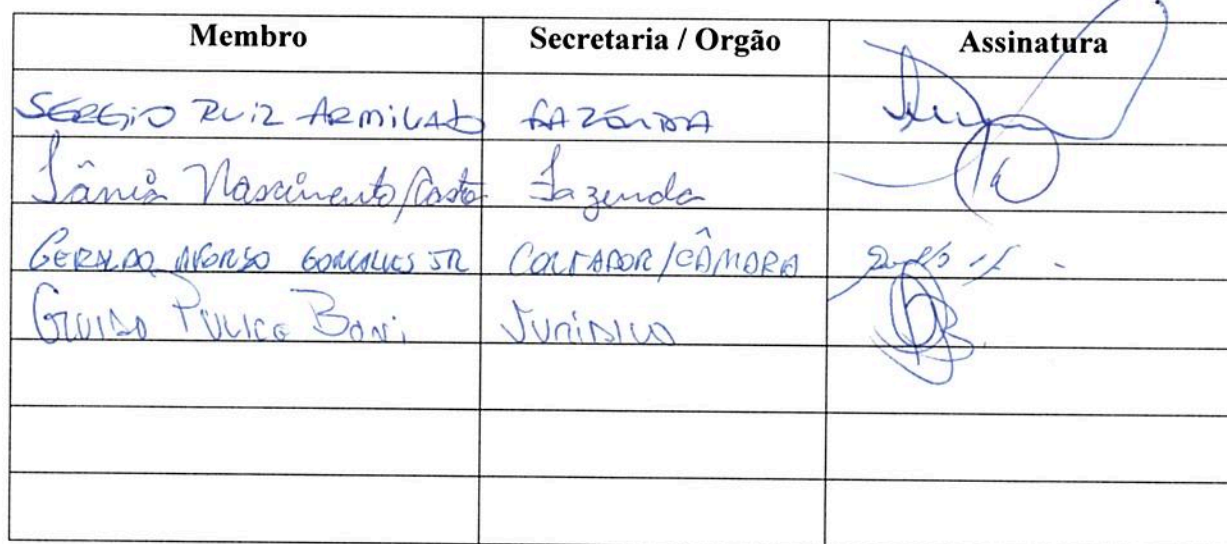 Membro Secretaria / Orgão Assinatura
SERGIO RUIZ ARMILIATO FAZENDA
Tânia Nascimento Costa Fazenda
GERALDO AFONSO GONÇALVES JR CONTADOR/CÂMARA
GUIDO BONI JURÍDICO